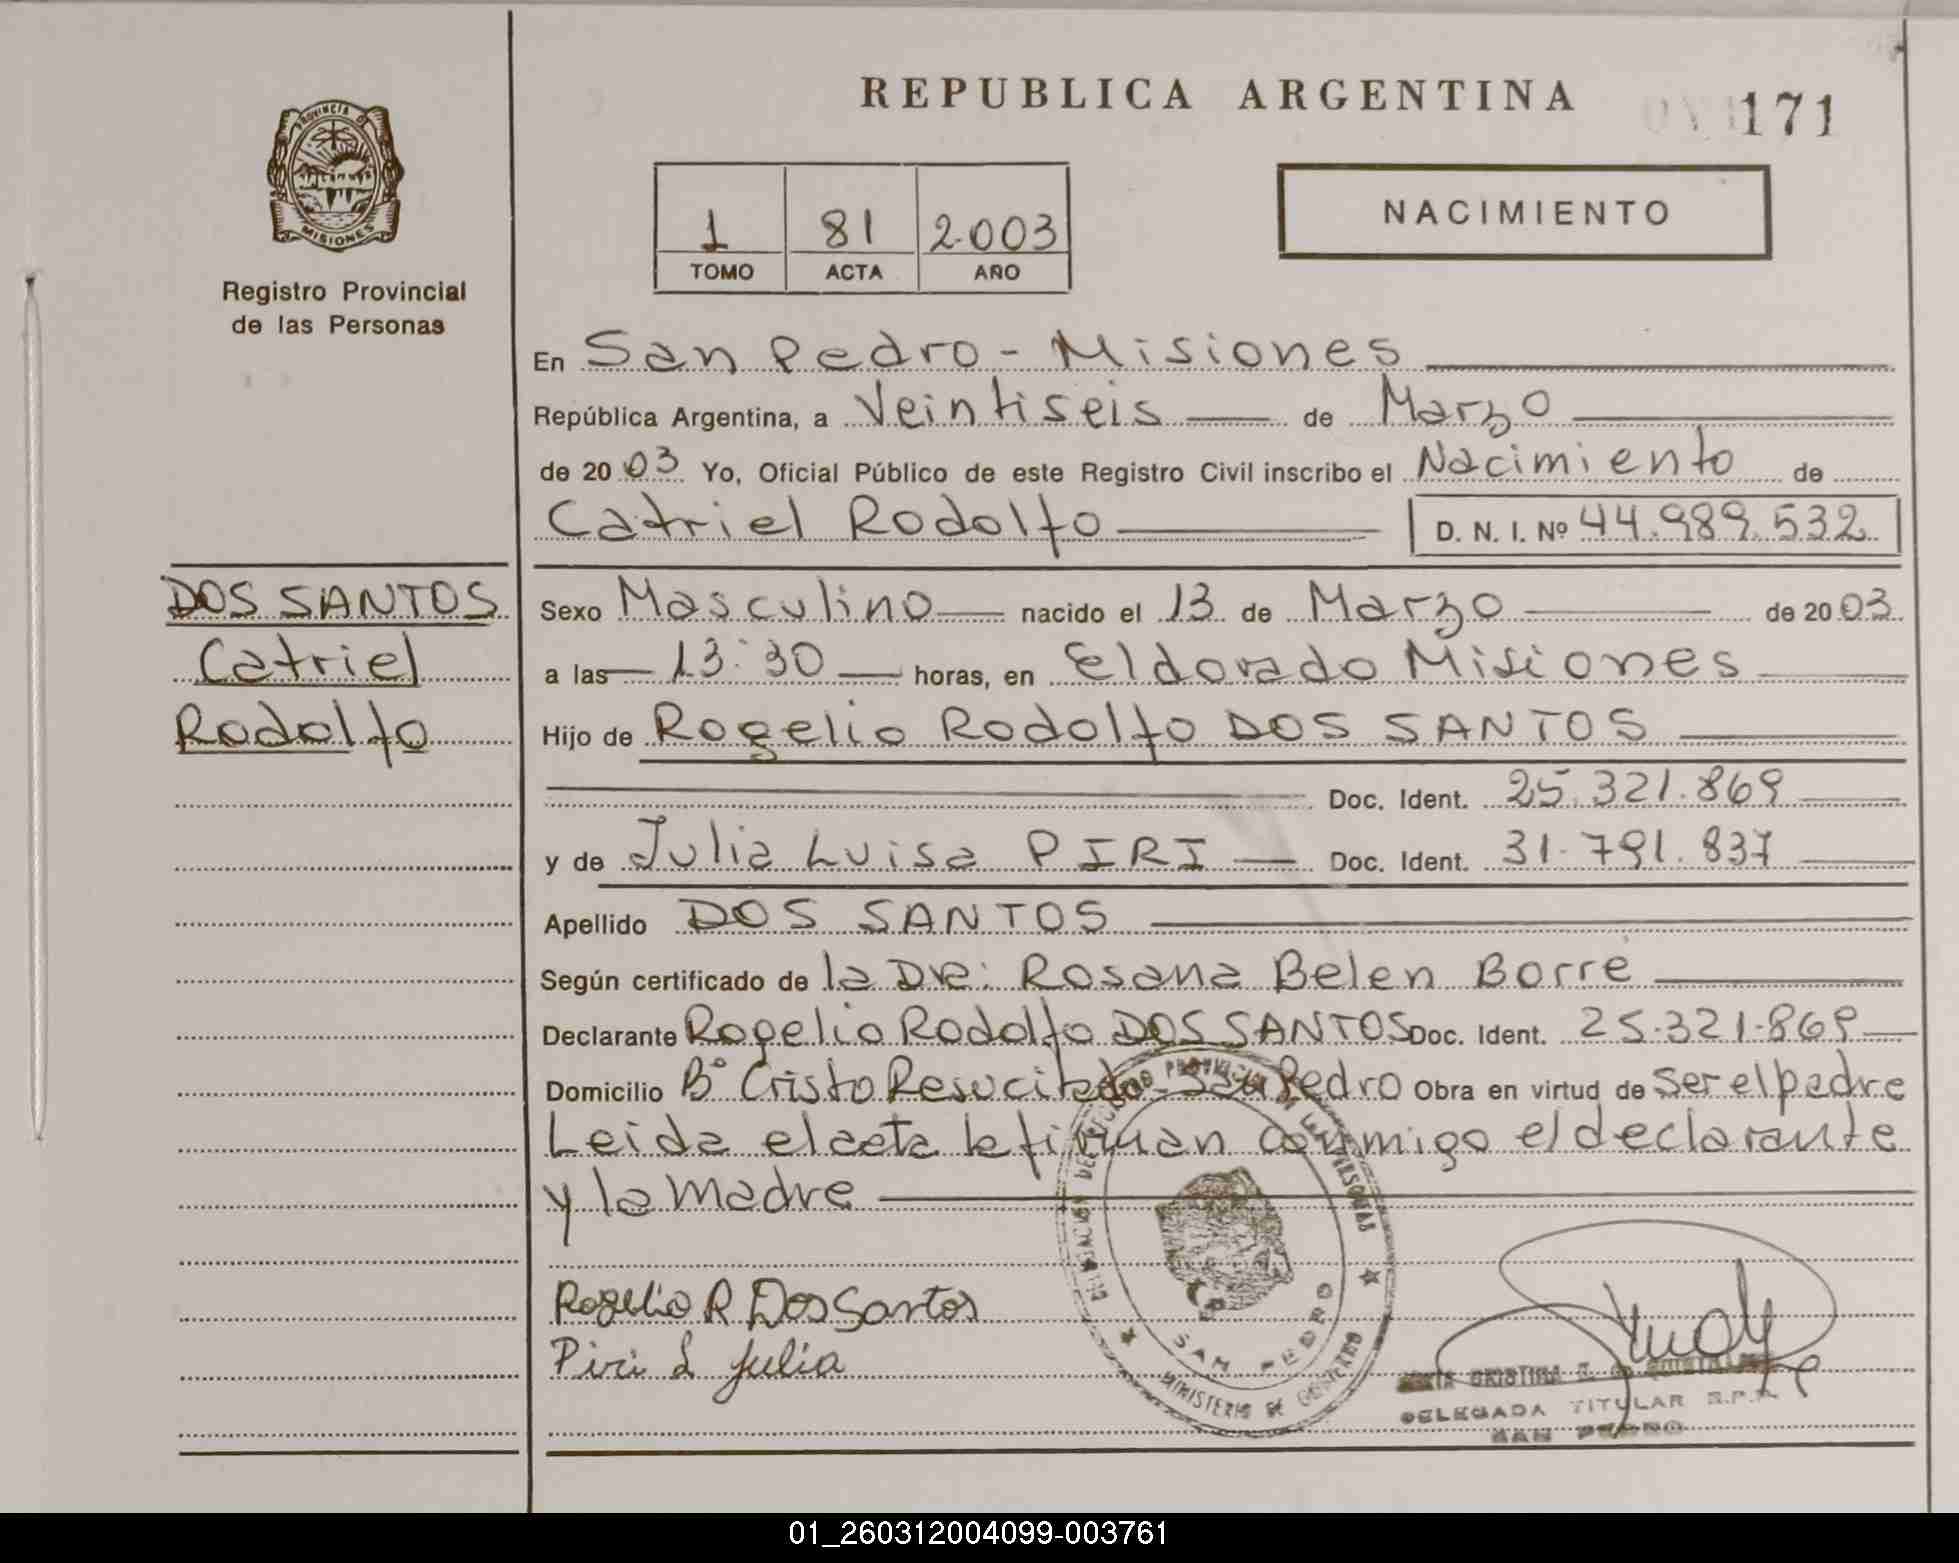 REPUBLICA ARGENTINA
171
PROVINCIA D
MISIONES
Registro Provincial
de las Personas
1 81 2.003
TOMO ACTA AÑO
NACIMIENTO
En San Pedro - Misiones
República Argentina, a Veintiseis de Marzo
de 2003 Yo, Oficial Público de este Registro Civil inscribo el Nacimiento de
Catriel Rodolfo D. N. I. Nº 44.989.532
DOS SANTOS
Catriel
Rodolfo
Sexo Masculino nacido el 13 de Marzo de 2003
a las 13:30 horas, en Eldorado Misiones
Hijo de Rogelio Rodolfo DOS SANTOS
Doc. Ident. 25.321.869
y de Julia Luisa PIRI Doc. Ident. 31.791.837
Apellido DOS SANTOS
Según certificado de la DRa: Rosana Belen Borré
Declarante Rogelio Rodolfo DOS SANTOS Doc. Ident. 25.321.869
Domicilio Bº Cristo Resucitado - San Pedro Obra en virtud de ser el padre
Leida el acta la firman conmigo el declarante
y la madre
Rogelio R Dos Santos
Piri L Julia
SAN PEDRO
MINISTERIO DE GOBIERNO
CRISTINA
DELEGADA TITULAR R.P.P.
SAN PEDRO
01_260312004099-003761